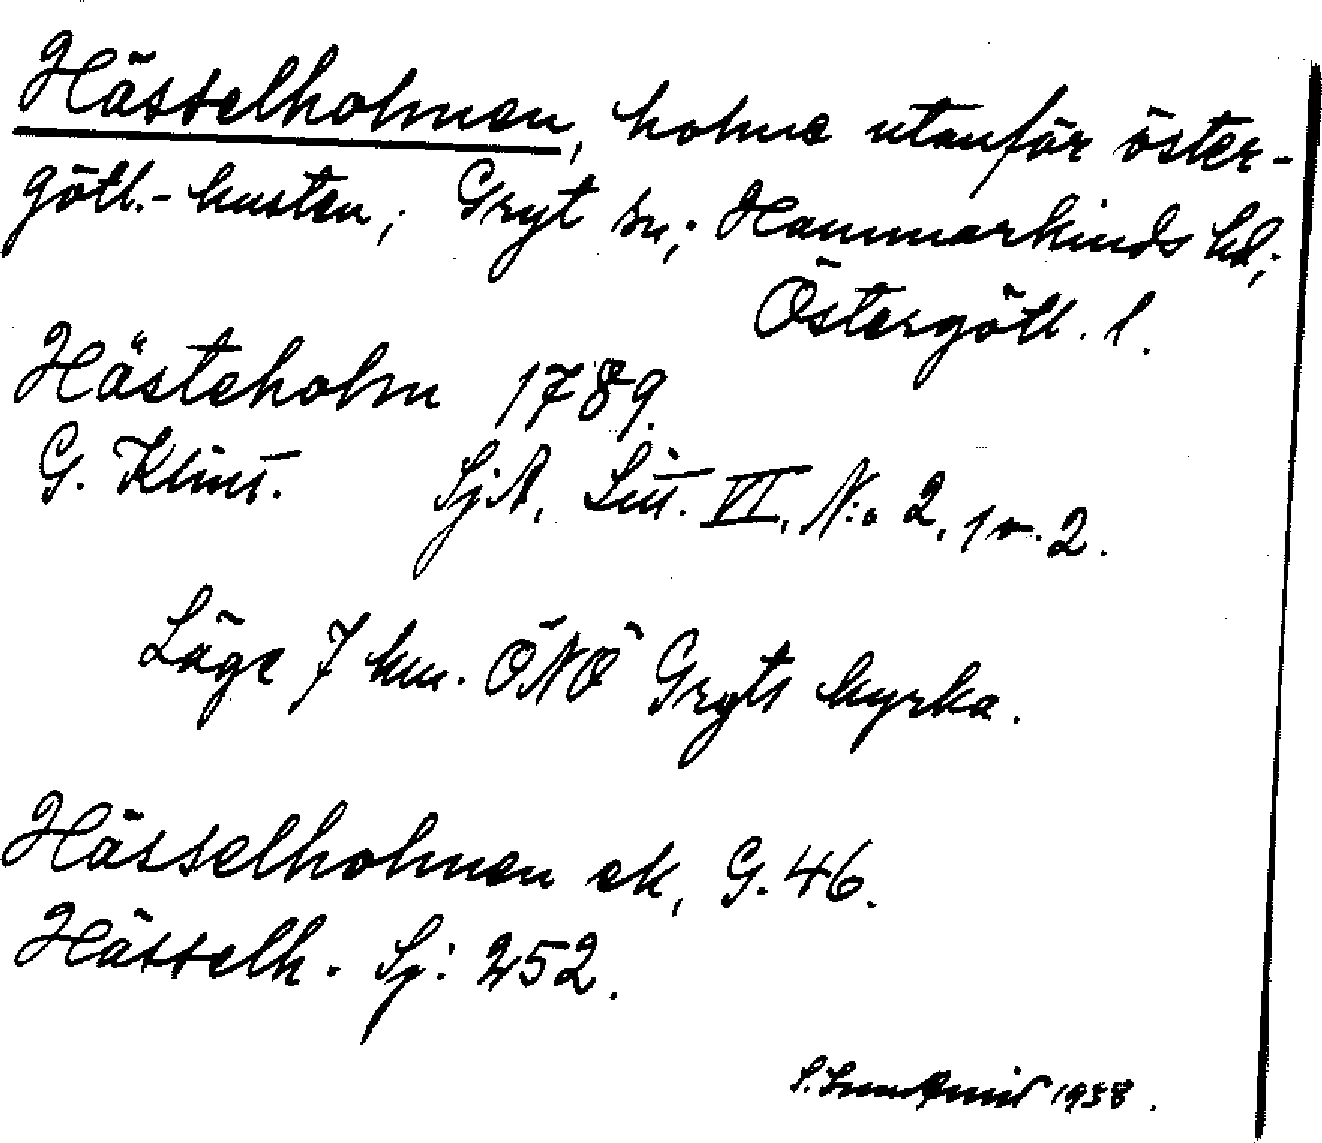 Hässelholmen, holme utanför öster-
götl.-kusten; Gryt sn; Hammarkinds hd;
Östergötl. l.
Hästeholm 1789.
G. Klint. SjA, Litt. VI, N:o 2, 1 o. 2.
Läge 7 km. ÖNÖ Gryts kyrka.
Hässelholmen ek, G. 46.
Hässelh. Sj: 252.
S. 1938.